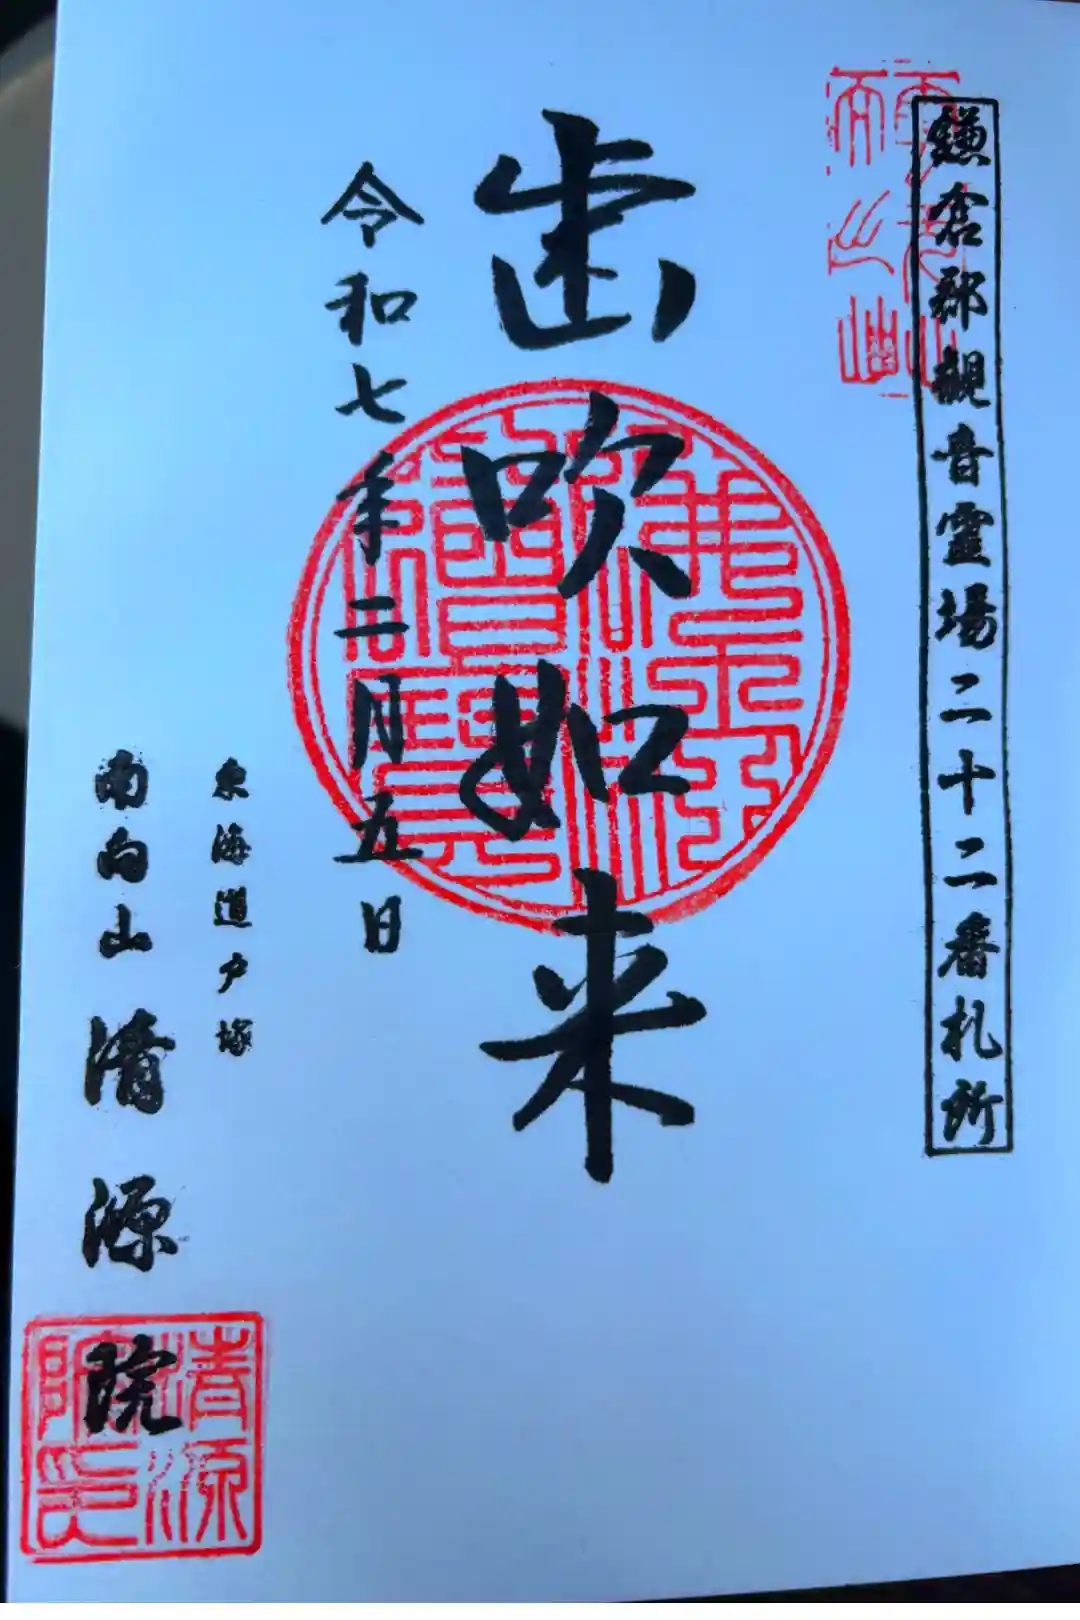 鎌倉郡観音霊場二十二番札所
歯吹如来
令和七年二月五日
東海道戸塚
南向山 清源院
清源院印